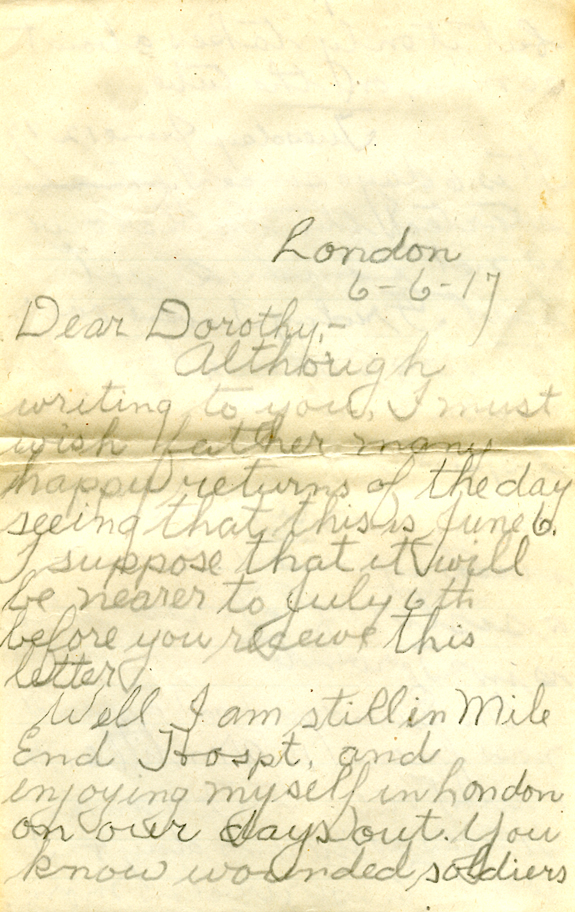 London
6-6-17
Dear Dorothy,-
Although
writing to you, I must
wish father many
happy returns of the day
seeing that this is June 6.
I suppose that it will
be nearer to July 6th
before you receive this
letter.
Well I am still in Mile
End Hospt, and
enjoying myself in London
on our days out. You
know wounded soldiers